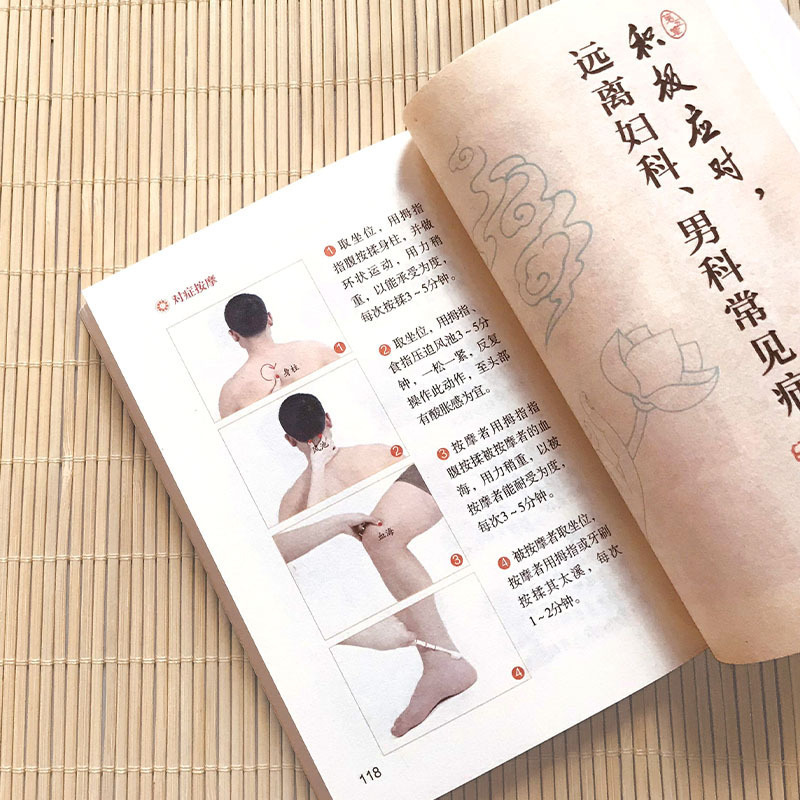 对症按摩
❶取坐位，用拇指
指腹按揉身柱，并做
环状运动，用力稍
重，以能承受为度，
每次按揉3～5分钟。
身柱
❶
❷取坐位，用拇指、
食指压迫风池3～5分
钟，一松一紧，反复
操作此动作，至头部
有酸胀感为宜。
风池
❷
❸按摩者用拇指指
腹按揉被按摩者的血
海，用力稍重，以被
按摩者能耐受为度，
每次3～5分钟。
血海
❸
❹被按摩者取坐位，
按摩者用拇指或牙刷
按揉其太溪，每次
1～2分钟。
❹
118
积极应对，
远离妇科、男科常见病